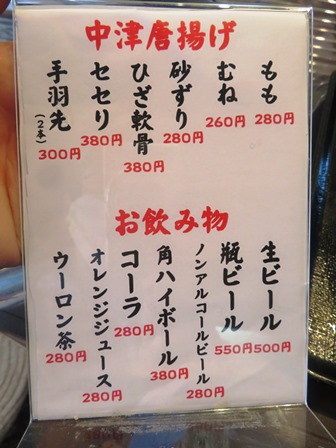 中津唐揚げ
もも
280円
むね
260円
砂ずり
280円
ひざ軟骨
380円
セセリ
380円
手羽先
(2本)
300円
お飲み物
生ビール
500円
瓶ビール
550円
ノンアルコールビール
280円
角ハイボール
380円
コーラ
280円
オレンジジュース
280円
ウーロン茶
280円